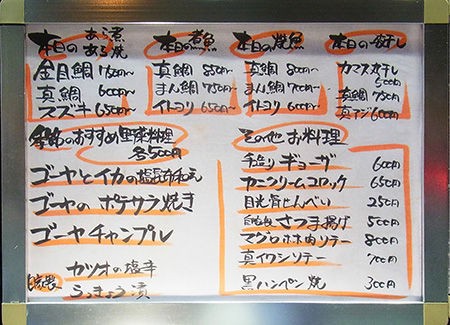 本日のあら煮
あら焼
金目鯛
真鯛 600〜
スズキ 650〜
本日の煮魚
真鯛 850〜
まん鯛 750〜
イトヨリ 650〜
本日の焼魚
真鯛 800〜
まん鯛 700〜
イトヨリ 600〜
本日の干し
カマス丸干し
500円
真鯛 750円
真アジ 600円
季節のおすすめ野菜料理
各500円
ゴーヤとイカの塩昆布和え
ゴーヤのポテサラ焼き
ゴーヤチャンプル
カツオの塩辛
自家製 らっきょう漬
その他お料理
手造りギョーザ 600円
カニクリームコロッケ 650円
目光骨せんべい 250円
自家製さつま揚げ 500円
マグロホホ肉ソテー 800円
真イワシソテー 700円
黒ハンペン焼 300円